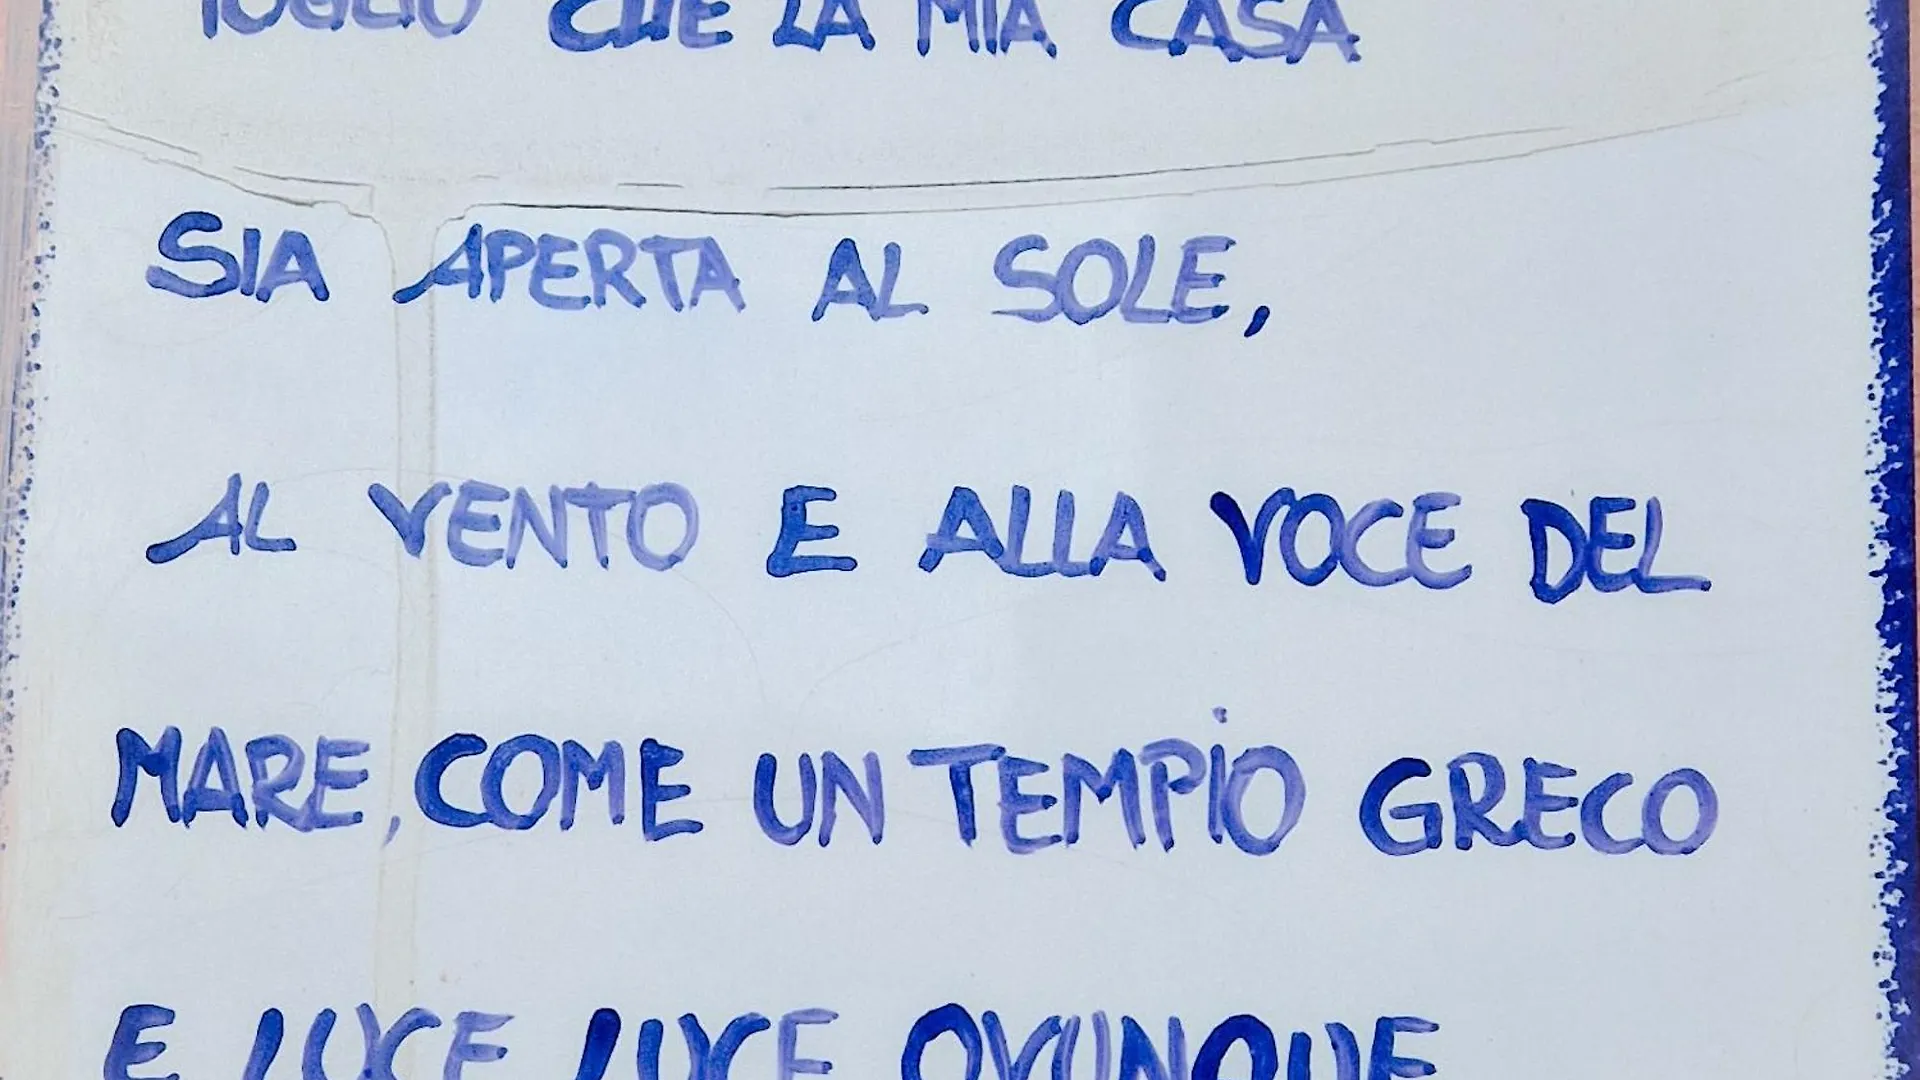 VOGLIO CHE LA MIA CASA
SIA APERTA AL SOLE,
AL VENTO E ALLA VOCE DEL
MARE, COME UN TEMPIO GRECO
E LUCE LUCE OVUNQUE